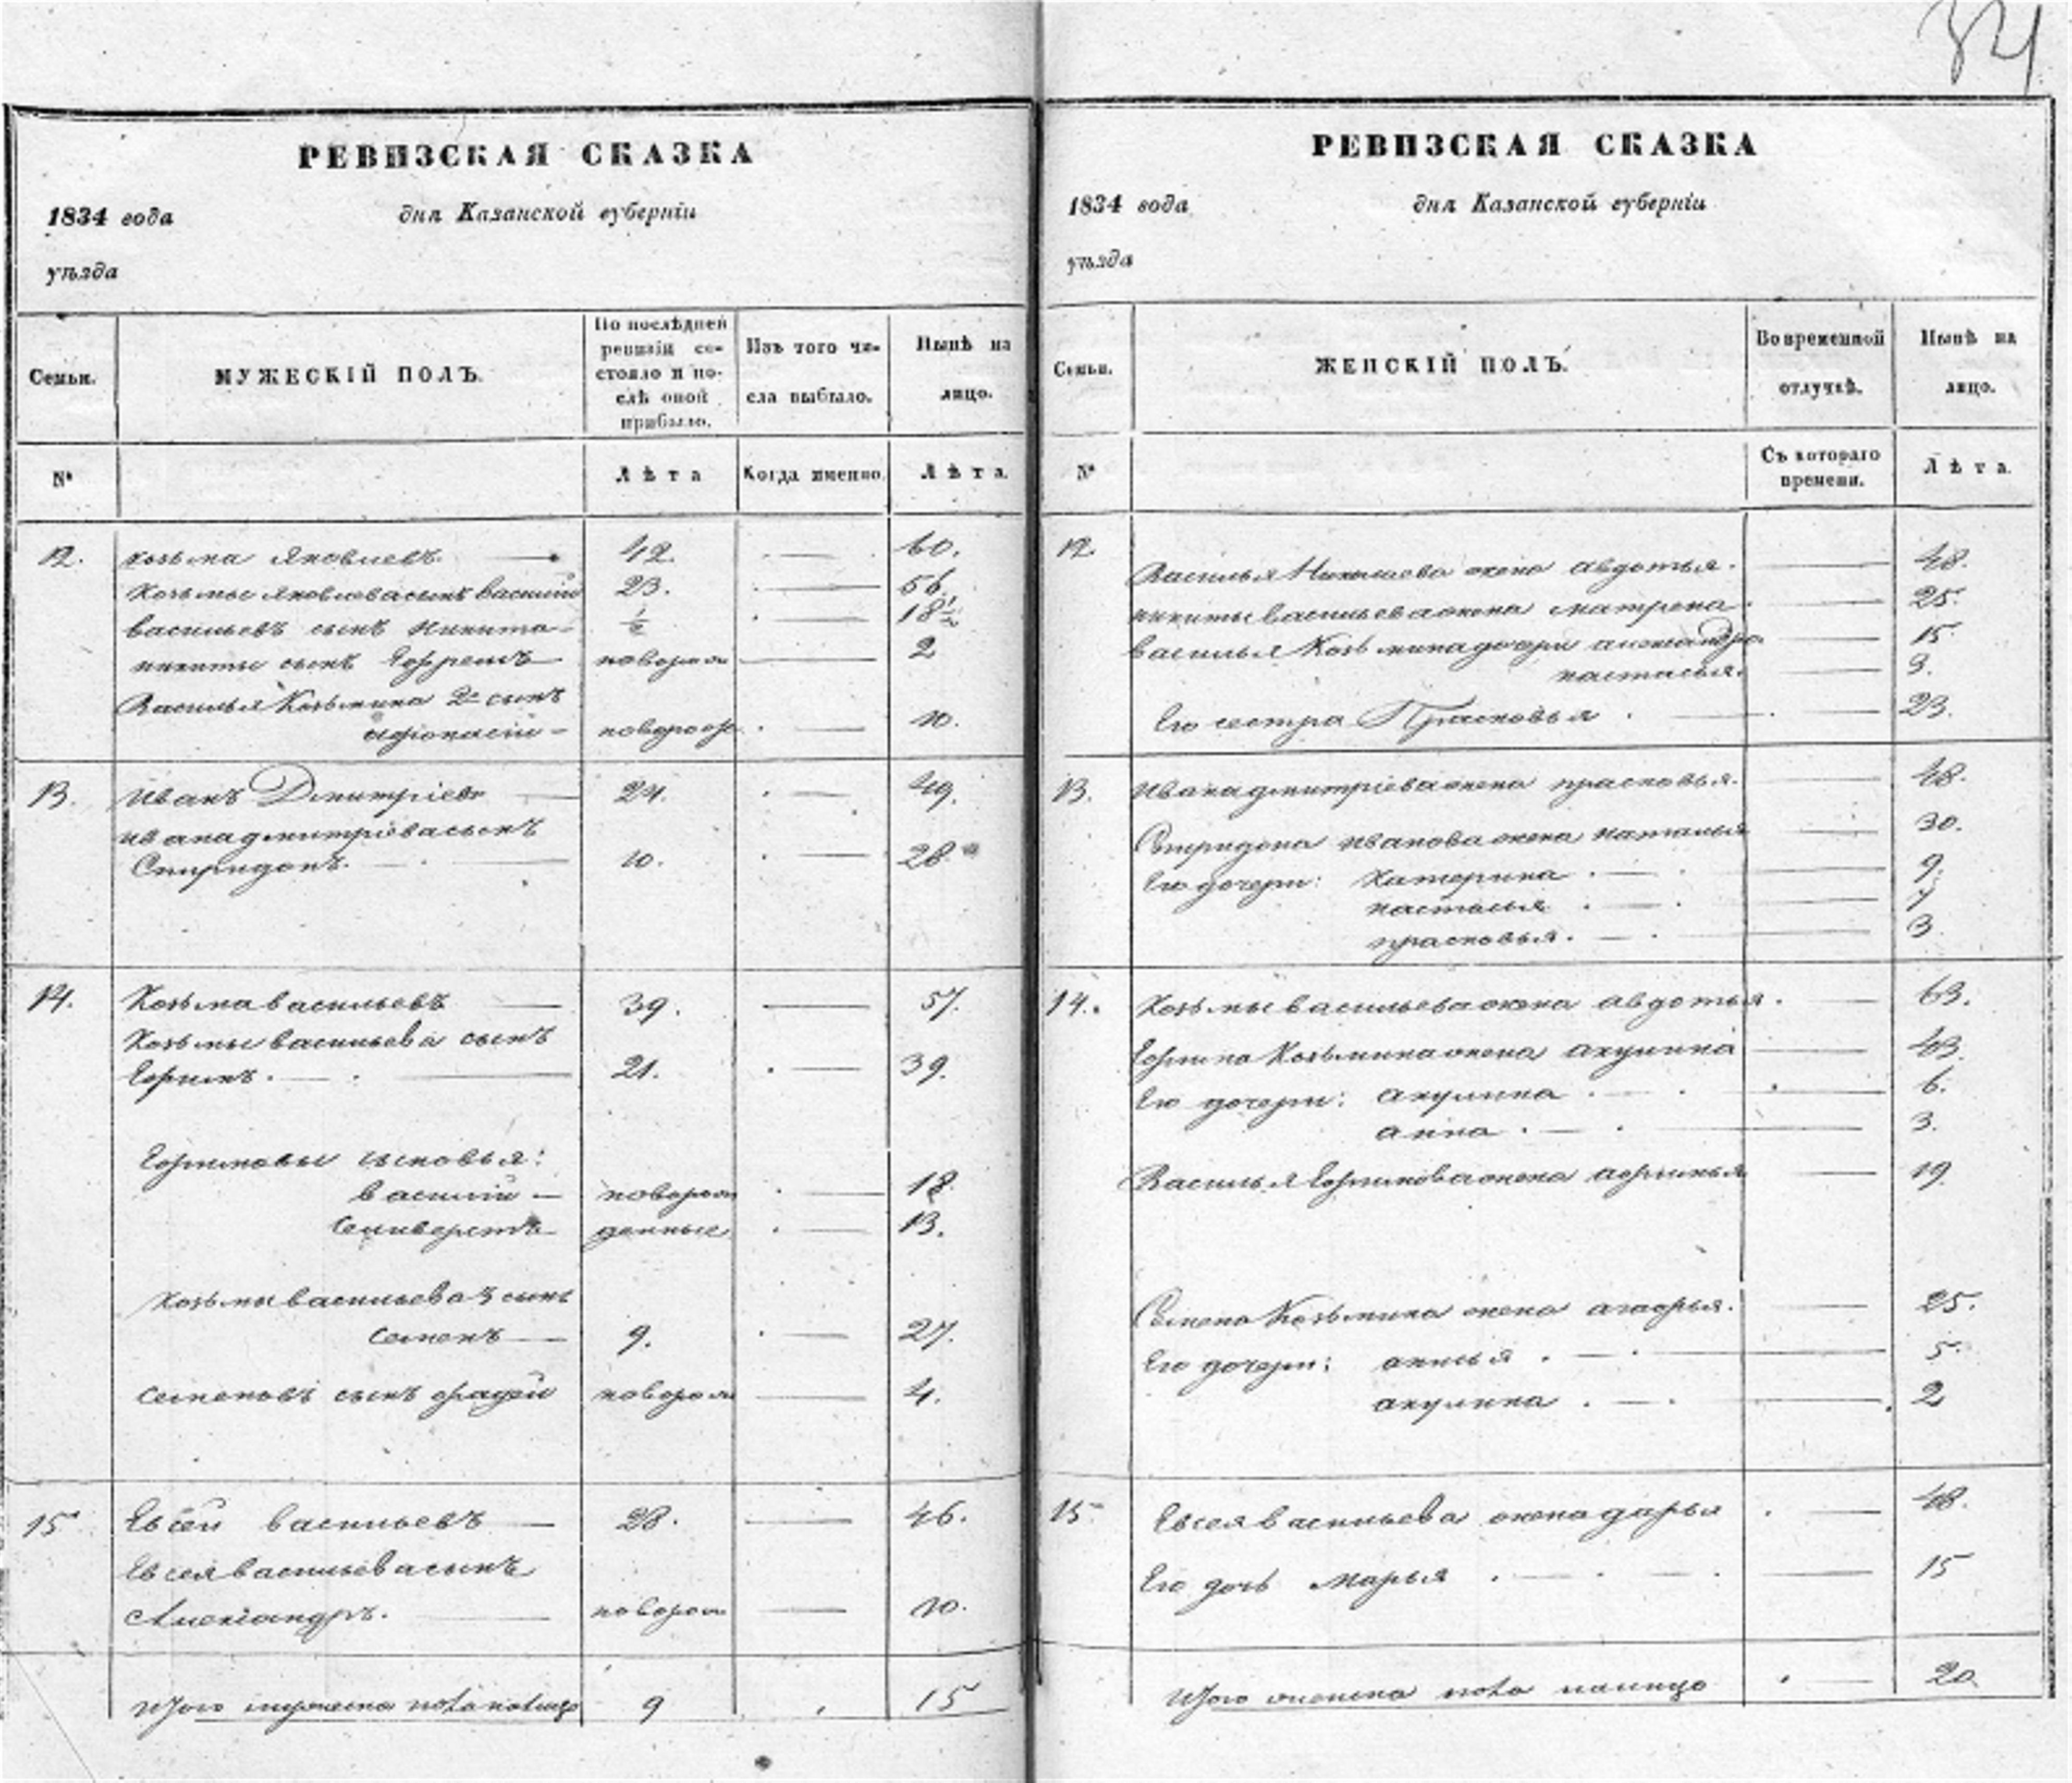 34
РЕВИЗСКАЯ СКАЗКА
1834 года дня Казанской губерніи
уѣзда
Семьи. МУЖЕСКІЙ ПОЛЪ. По послѣдней ревизіи состояло и послѣ оной прибыло. Изъ того числа выбыло. Нынѣ на лицо.
№ Лѣта Когда именно. Лѣта.
12. Козьма Яковлевъ — 42. — 60.
Козьмы Яковлева сынъ василий 23. — 56.
васильевъ сынъ Никита — 1/2 — 18 1/2
никиты сынъ Ефремъ — новорож — 2
Василья Козьмина 2й сынъ
афонасій — новорож — 10.
13. Иванъ Дмитріевъ — 24. — 49.
ивана дмитріева сынъ
Спиридонъ. — 10. — 28
14. Козьма васильевъ — 39. — 57.
Козьмы васильева сынъ
Ефимъ. — 21. — 39.
Ефимовы сыновья:
василій — новорож — 18.
Селиверстъ — денные — 13.
Козьмы васильева 3 сынъ
семенъ — 9. — 27.
семеновъ сынъ фадей новорож — 4.
15 Евсей васильевъ — 28. — 46.
Евсея васильева сынъ
Александръ. — новорож — 10.
Итого мужеска пола налицо 9 15
РЕВИЗСКАЯ СКАЗКА
1834 года дня Казанской губерніи
уѣзда
Семьи. ЖЕНСКІЙ ПОЛЪ. Во временной отлучкѣ. Нынѣ на лицо.
№ Съ котораго времени. Лѣта.
12. Василья Николаева жена авдотья. — 48.
никиты васильева жена матрена. — 25.
василья Козьмина дочери александра — 15.
настасья. — 9.
Его сестра Прасковья. — 23.
13. Ивана дмитріева жена прасковья. — 48.
Спиридона иванова жена наталья — 30.
Его дочери: Катерина. — 9.
настасья. — 7
прасковья. — 3
14. Козьмы васильева жена авдотья. — 63.
Ефима Козьмина жена акулина — 43.
Его дочери: акулина. — 6.
анна. — 3.
Василья Ефимова жена афимья — 19.
Семена Козьмина жена агафья. — 25.
Его дочери: анисья. — 5.
акулина. — 2
15 Евсея васильева жена дарья. — 48.
Его дочь Марья. — 15
Итого женска пола налицо. — 20.